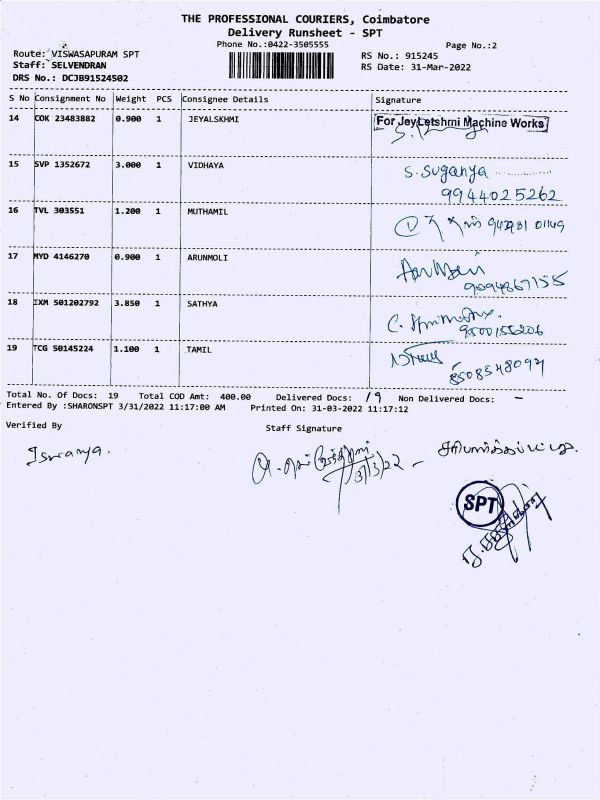 THE PROFESSIONAL COURIERS, Coimbatore
Delivery Runsheet - SPT
Phone No.:0422-3505555
Page No.:2
Route: VISWASAPURAM SPT
RS No.: 915245
Staff: SELVENDRAN
RS Date: 31-Mar-2022
DRS No.: DCJB91524502
S No Consignment No Weight PCS Consignee Details Signature
14 COK 23483882 0.900 1 JEYALSKHMI For JeyLetshmi Machine Works
15 SVP 1352672 3.000 1 VIDHAYA S. Suganya
9944025262
16 TVL 303551 1.200 1 MUTHAMIL
17 MYD 4146270 0.900 1 ARUNMOLI
18 IXM 501202792 3.850 1 SATHYA
9500155206
19 TCG 50145224 1.100 1 TAMIL
Total No. Of Docs: 19 Total COD Amt: 400.00 Delivered Docs: 19 Non Delivered Docs: -
Entered By :SHARONSPT 3/31/2022 11:17:00 AM Printed On: 31-03-2022 11:17:12
Verified By Staff Signature
31/3/22
SPT